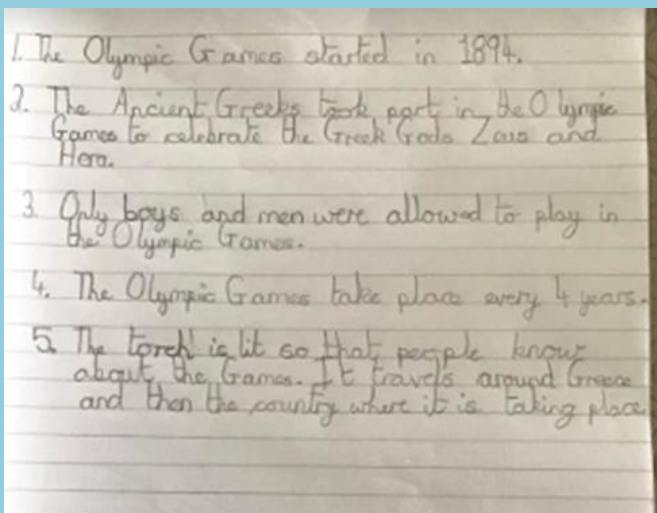 1. The Olympic Games started in 1894.
2. The Ancient Greeks took part in the Olympic
Games to celebrate the Greek Gods Zeus and
Hera.
3. Only boys and men were allowed to play in
the Olympic Games.
4. The Olympic Games take place every 4 years.
5. The torch is lit so that people know
about the Games. It travels around Greece
and then the country where it is taking place